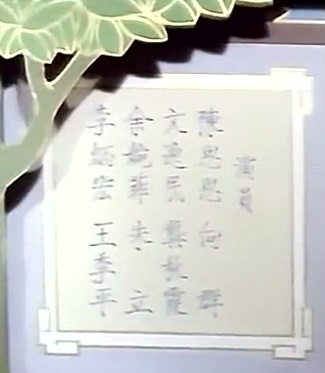 演員
陳思思 向群
文逸民 龔秋霞
余婉菲 朱立
李炳宏 王季平